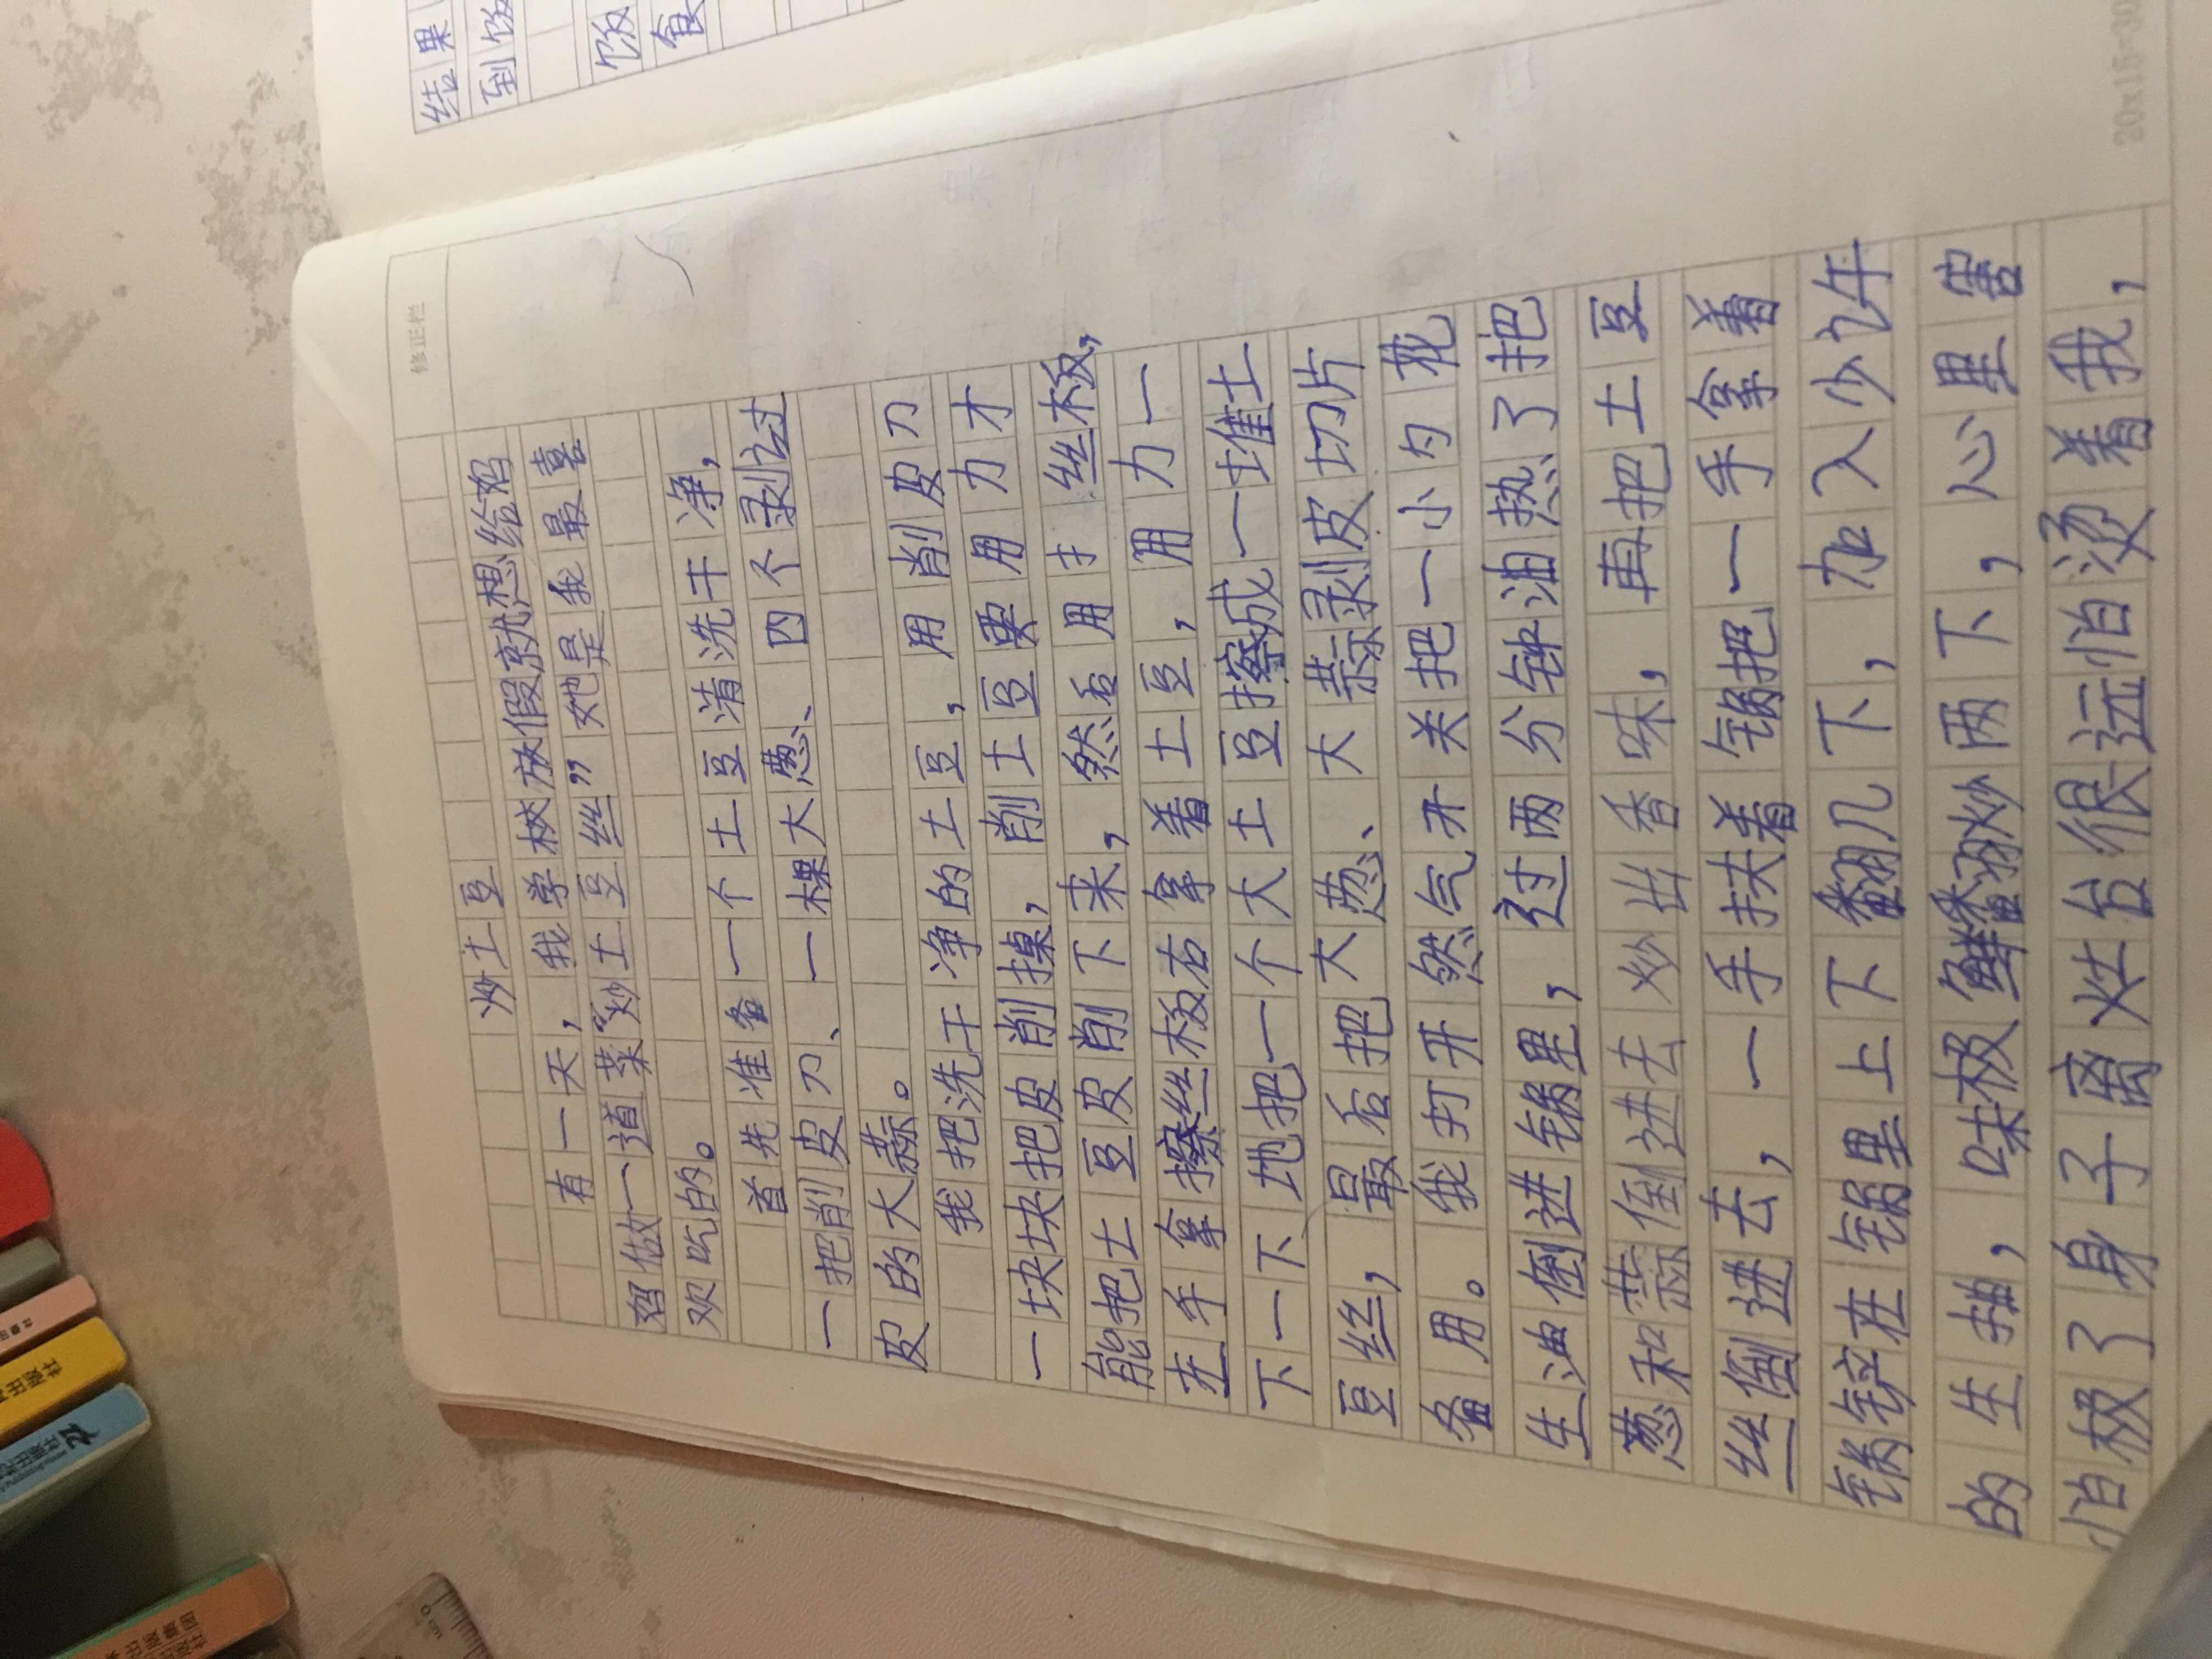 炒土豆
有一天，我学校放假就想给妈
妈做一道菜“炒土豆丝”她是我最喜
欢吃的。
首先准备一个土豆清洗干净，
一把削皮刀、一棵大葱、四个剥过
皮的大蒜。
我把洗干净的土豆，用削皮刀
一块块把皮削掉，削土豆要用力才
能把土豆皮削下来，然后用手丝板，
左手拿擦丝板右拿着土豆，用力一
下一下地把一个大土豆擦成一堆土
豆丝，最后把大葱、大蒜剥皮切片
备用。我打开然气开关把一小勺花
生油倒进锅里，过两分钟油热了把
葱和蒜倒进去炒出香味，再把土豆
丝倒进去，一手扶着锅把一手拿着
锅铲在锅里上下翻几下，加入少许
的生抽，味极鲜翻炒两下，心里害
怕极了身子离灶台很远怕烫着我，
修正栏
20x15=300
结果
到饭
饭
食